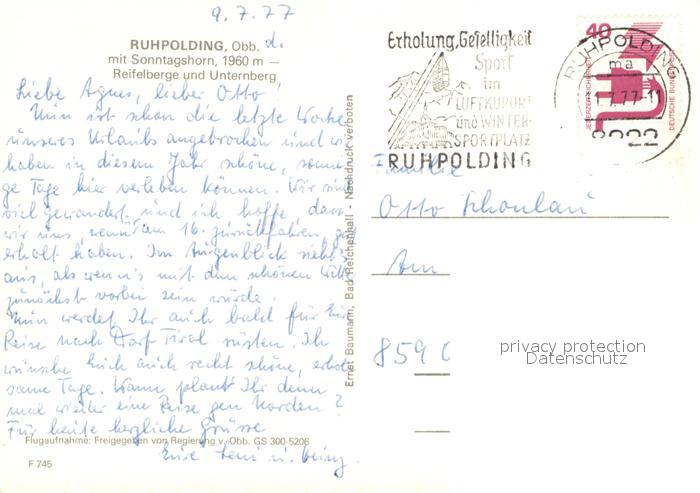 9.7.77
RUHPOLDING, Obb. d.
mit Sonntagshorn, 1960 m —
Reifelberge und Unternberg
Liebe Agnes, lieber Otto!
Nun ist schon die letzte Woche
unseres Urlaubs angebrochen und wir
haben in diesem Jahr schöne, sonni
ge Tage hier verleben können. Wir sind
viel gewandert und ich hoffe, dass
wir uns wenn am 16. zurückfahren, gut
erholt haben. Im Augenblick sieht's
aus, als wenn's mit dem schönen Wetter
zunächst vorbei sein würde.
Nun werdet Ihr auch bald für Eure
Reise nach Dorf Tirol rüsten. Ich
wünsche Euch auch recht schöne, erhol
same Tage. Wann plant Ihr denn
mal wieder eine Reise gen Norden?
Für heute herzliche Grüsse
Eure Leni u.
Flugaufnahme: Freigegeben von Regierung v. Obb. GS 300-5206
F 745
Ernst Baumann, Bad Reichenhall - Nachdruck verboten
Erholung, Geselligkeit
Sport
im
LUFTKURORT
und WINTER-
SPORTPLATZ
RUHPOLDING
40
JEDERZEIT SICHERHEIT
DEUTSCHE BUNDESPOST
RUHPOLDING
ma
7.77-11
8222
Familie
Otto Schonlau
Am
859
privacy protection
Datenschutz